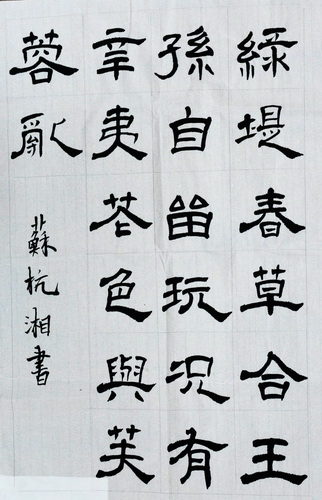 綠堤春草合王
孫自留玩况有
辛夷花色與芙
蓉亂
蘇杭湘書